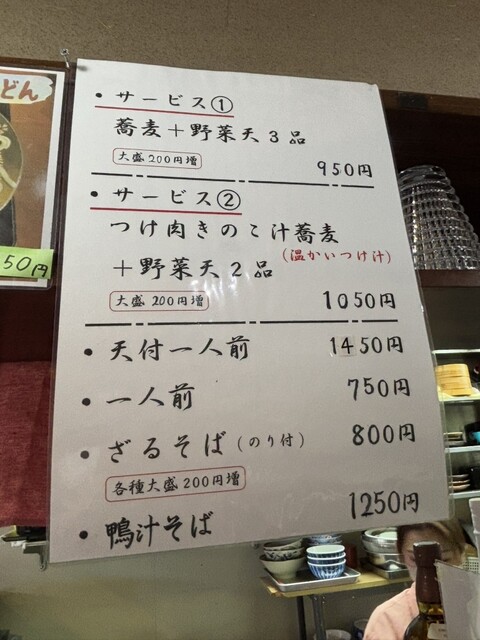 どん
50円
・サービス①
蕎麦＋野菜天3品
大盛200円増
950円
・サービス②
つけ肉きのこ汁蕎麦
(温かいつけ汁)
＋野菜天2品
大盛200円増
1050円
・天付一人前 1450円
・一人前 750円
・ざるそば(のり付) 800円
各種大盛200円増
・鴨汁そば 1250円